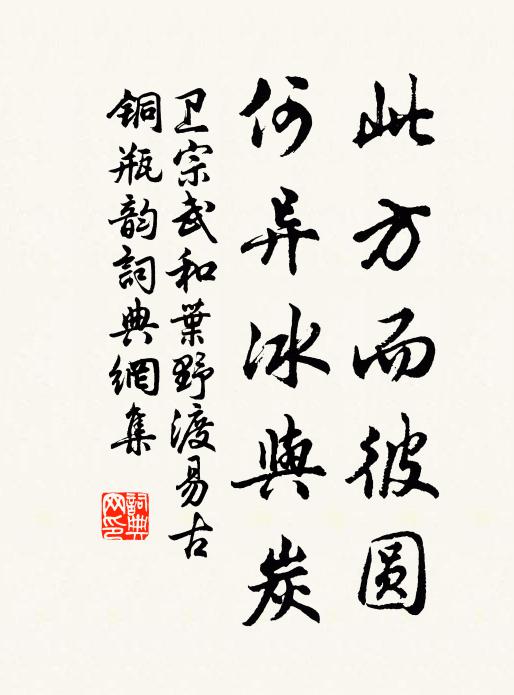 此方而彼圆
何异冰與炭
卫宗武和葉野渡易古
铜瓶韵詞典網集
詞典网印